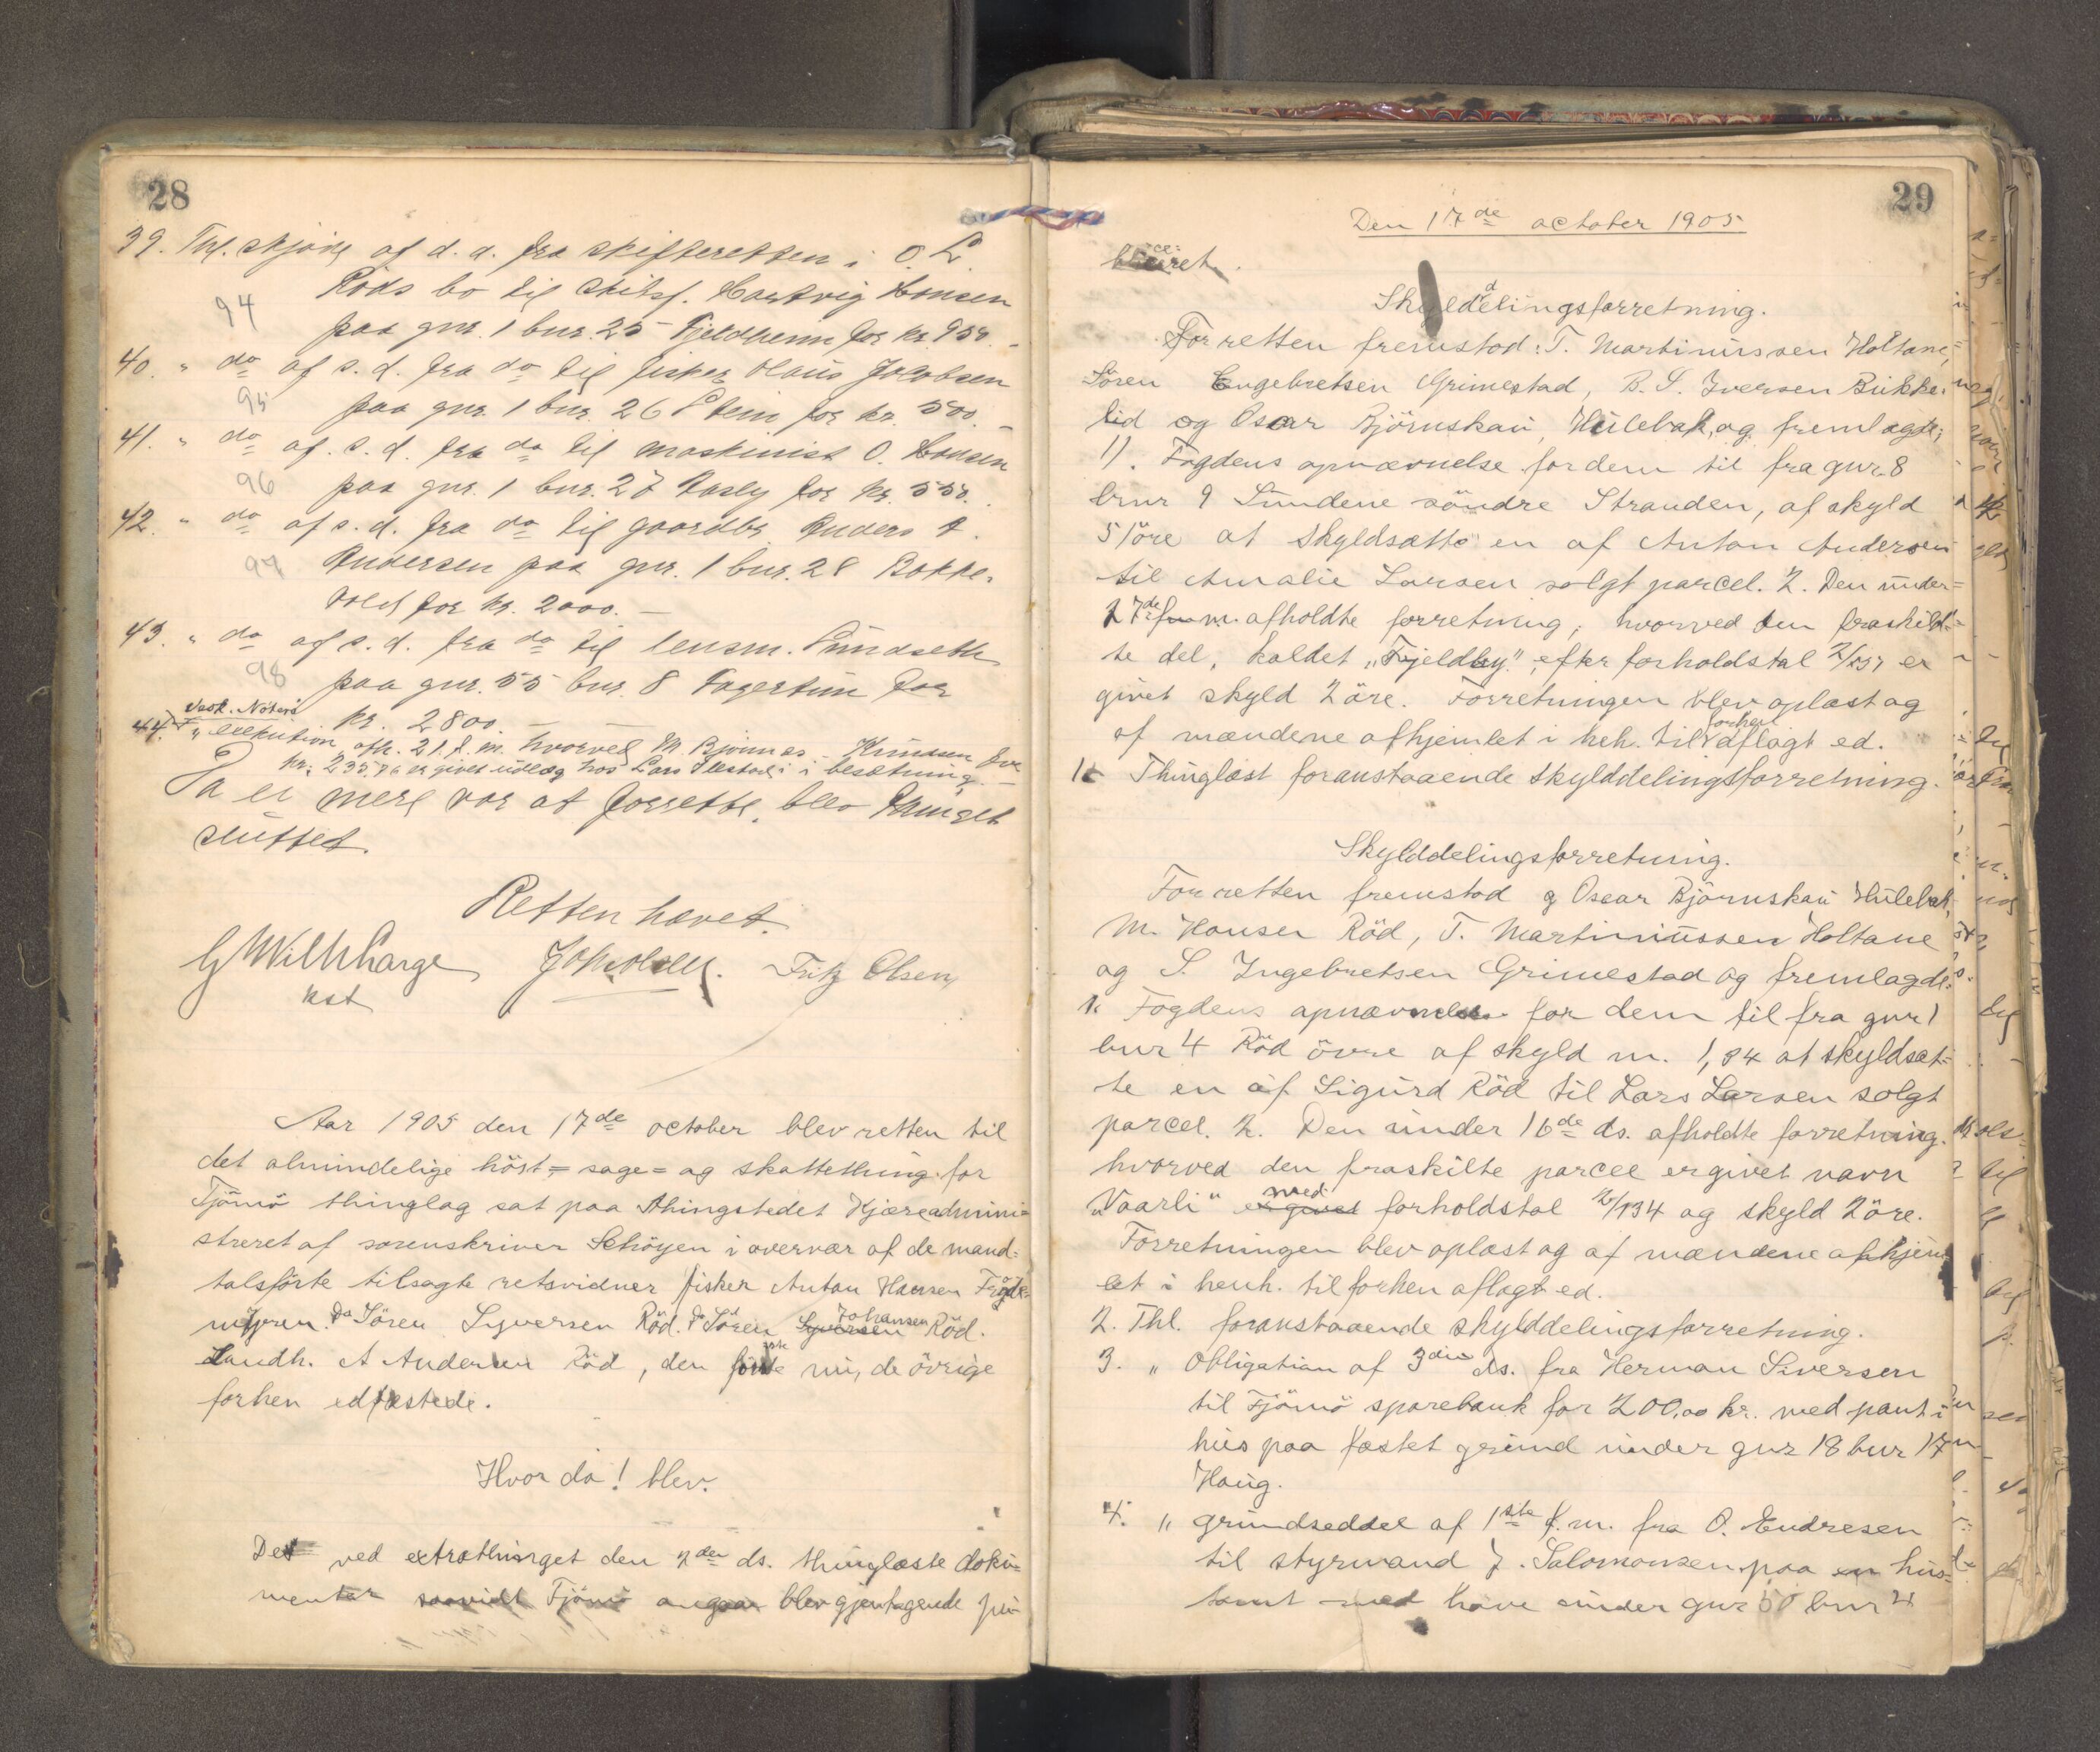 28
39. Thl. skjöde af d. d. fra skifteretten i O. L.
Röds bo til skibsf. Hartvig Hansen
94
paa gnr. 1 bnr. 25 Fjeldheim for kr. 950. –
40. " do af s. d. fra do til fisker Olaus Jacobsen
95
paa gnr. 1 bnr. 26 Stein for kr. 500. –
41. " do af. s. d. fra do til maskinist O. Hansen
96
paa gnr. 1 bnr. 27 Rasly for kr. 550.
42. " do af s. d. fra do til gaardbr. Anders A.
97
Andersen paa gnr. 1 bnr. 28 Bakke-
vold for kr. 2000. –
43. " do af s. d. fra do til lensm. Sundseth
98
paa gnr. 55 bnr. 8 Fagertun for
kr. 2800. –
44. " exekution afh. 21 f. m. hvorved M. Bjönnes - Knudsen for
kr. 235,76 er givet udlæg hos Lars Ilestad i besætning. –
Da ei mere var at forrette, blev thinget
sluttet.
Retten hævet.
Fritz Olsen
kst
Aar 1905 den 17de october blev retten til
det almindelige höst= sage= og skattething for
Tjömö thinglag sat paa thingstedet Kjære admini=
streret af sorenskriver Schöyen i overvær af de mand=
talsförte tilsagte retsvidner fisker Anton Hansen
myren. Do Sören Syversen Röd. Do Sören Syversen Johansen Röd.
Landh. A Andersen Röd, den förste nu, de övrige
forhen edfæstede.
Hvor da! blev.
Det ved extrathinget den 2den ds. thinglæste doku=
menter saavidt Tjömö angaar blev gjentagende pu-
29
Den 17de october 1905
bliceret.
Skylddelingsforretning.
For retten fremstod: T. Martinussen Holtane,
Sören Engebretsen Grimestad, B. S. Iversen Bukke-
lid og Oscar Björnskau, Hulebak, og fremlagde;
1). Fogdens opnævnelse for dem til fra gnr. 8
bnr 9 Sundene söndre Stranden, af skyld
51öre at skyldsætte en af Anton Andersen
til Amalie Larsen solgt parcel. 2. Den under=
17de f. m. afholdte forretning, hvorved den fraskild=
te del, kaldet "Fjeldly" efter forholdstal er
givet skyld 2 öre. Forretningen blev oplæst og
af mændene afhjemlet i heh. til forhen aflagt ed.
1. Thinglæst foranstaaende skylddelingsforretning.
Skylddelingsforretning.
For retten fremstod Oscar Björnskau Hulebak,
M. Hansen Röd, T. Martiniussen Holtane
og S. Ingebretsen Grimestad og fremlagde:
1. Fogdens opnævnelse for dem til fra gnr 1
bnr 4 Röd övre af skyld m. 1,34 at skyldsæt=
te en af Sigurd Röd til Lars Larsen solgt
parcel. 2. Den under 16de ds. afholdte forretning.
hvorved den fraskilte parcel er givet navn
"Vaarli" er givet med forholdstal 2/134 og skyld 2 öre.
Forretningen blev oplæst og af mændene afhjem
let i henh. til forhen aflagt ed.
2. Thl. foranstaaende skylddelingsforretning.
3. " Obligation af 3die ds. fra Herman Siversen
til Tjömö sparebank for 200,00 kr. med pant i
hus paa fæstet grund under gnr 18 bnr 17
Haug.
4. " grundseddel af 1ste f. m. fra O. Endresen
til styrmand J. Salomonsen paa en hus=
tomt med have under gnr 50 bnr 4